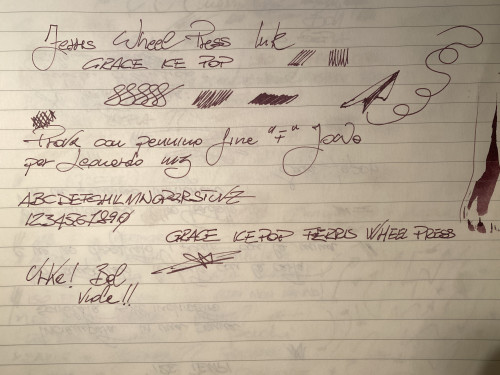 Ferris Wheel Press Ink
GRAPE ICE POP
Prova con pennino fine "F" JoWo
per Leonardo mz
ABCDEFGHILMNOPQRSTUVZ
1234567890
GRAPE ICE POP FERRIS WHEEL PRESS
Urka! Bel
viola!!